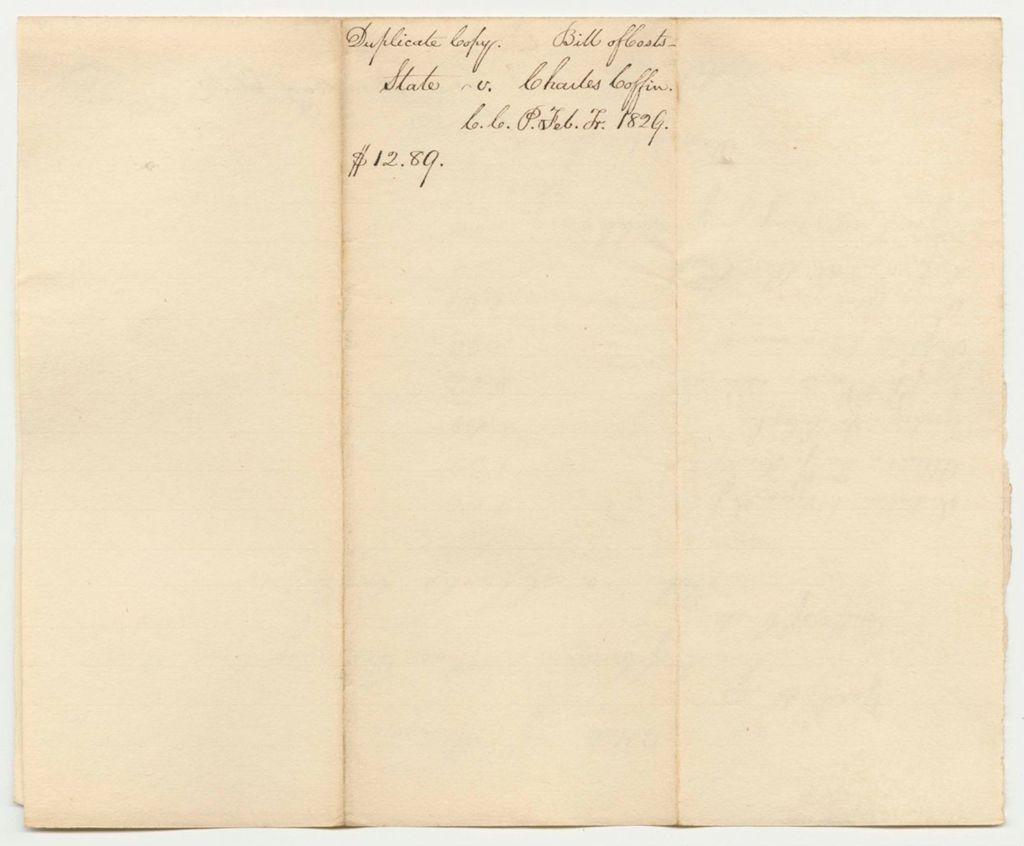 Duplicate Copy. Bill of Costs-
State v. Charles Coffin.
C.C.P. Feb. Tr. 1829.
$12.89.